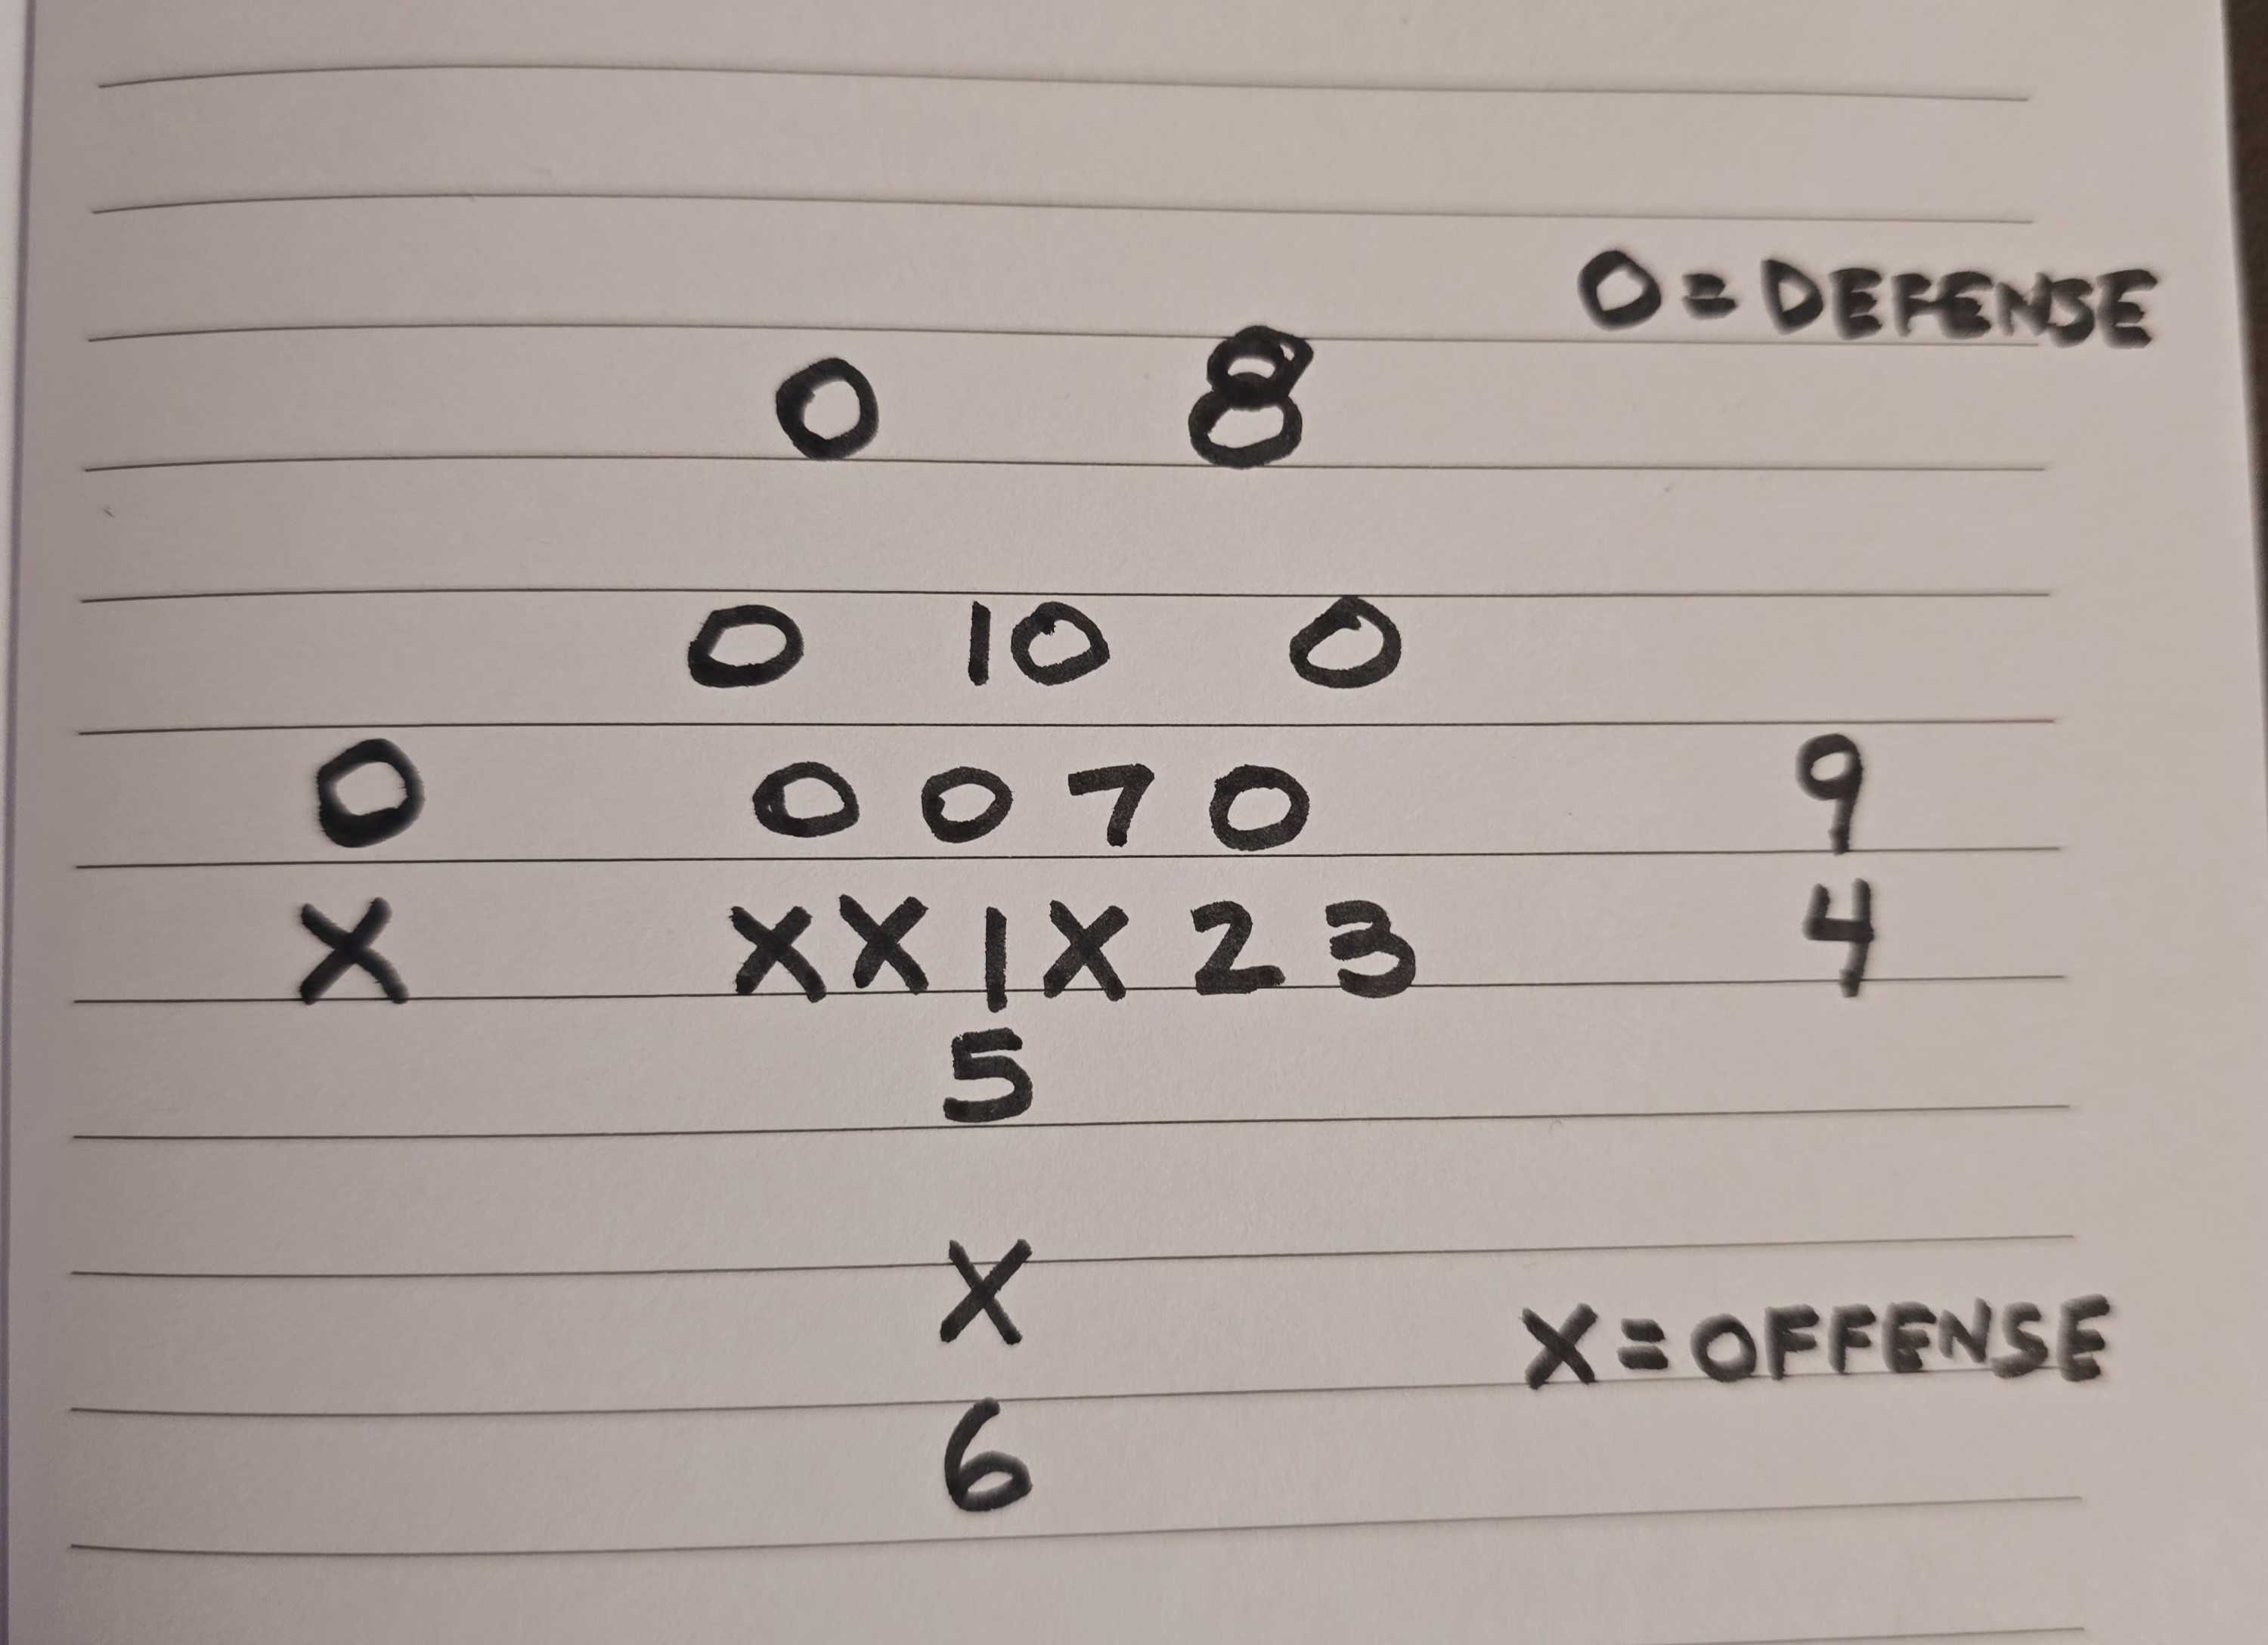 O = DEFENSE
O 8
O 10 O
O O O 7 O 9
X X X 1 X 2 3 4
5
X
X = OFFENSE
6